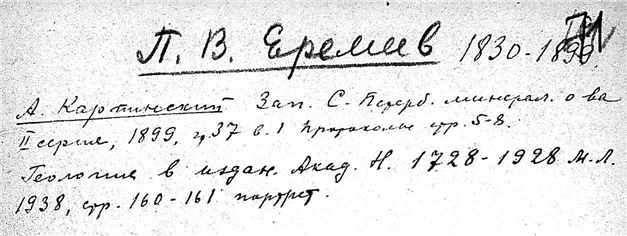 П. В. Еремеев 1830-1899.
А. Карпинский Зап. С.-Петерб. минерал. о-ва
II серия, 1899, ч. 37 в. 1 Протоколы стр. 5-8.
Геология в издан. Акад. Н. 1728-1928 М.-Л.
1938, стр. 160-161 портрет.